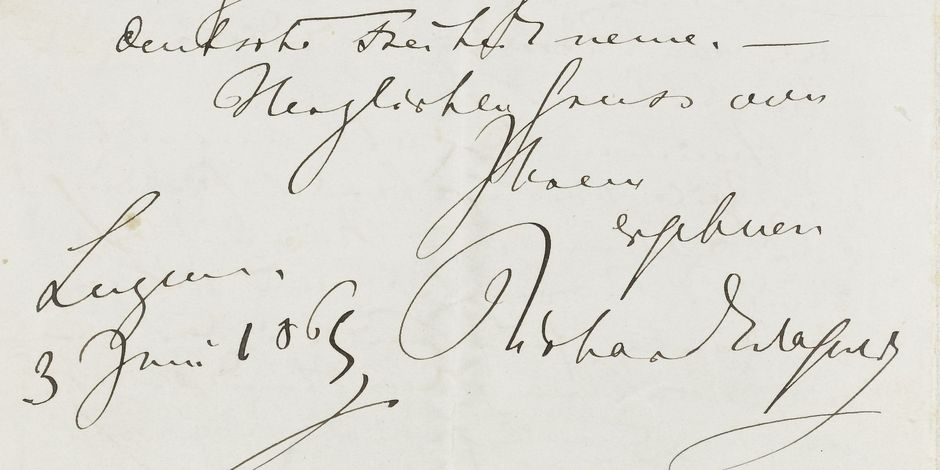 deutsche Freiheit nenne. —
Herzlichen Gruss von
Ihrem
ergebnen
Luzern.
3 Juni 1869
Richard Wagner